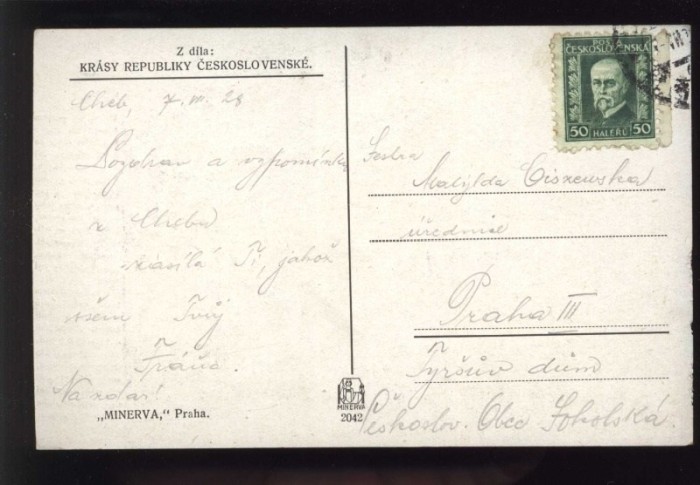 Z díla:
KRÁSY REPUBLIKY ČESKOSLOVENSKÉ.
Cheb, 7. VII. 28
Pozdrav a vzpomínku
z Chebu
zasílá Ti, jakož
všem Tvůj
Fráňa.
Na zdar!
„MINERVA,“ Praha.
MINERVA
2042
POŠTA
ČESKOSLOVENSKÁ
50 HALÉŘŮ 50
Sestra
Matylda Ciszewska
úřednice
Praha III
Tyršův dům
Českoslov. Obec Sokolská.